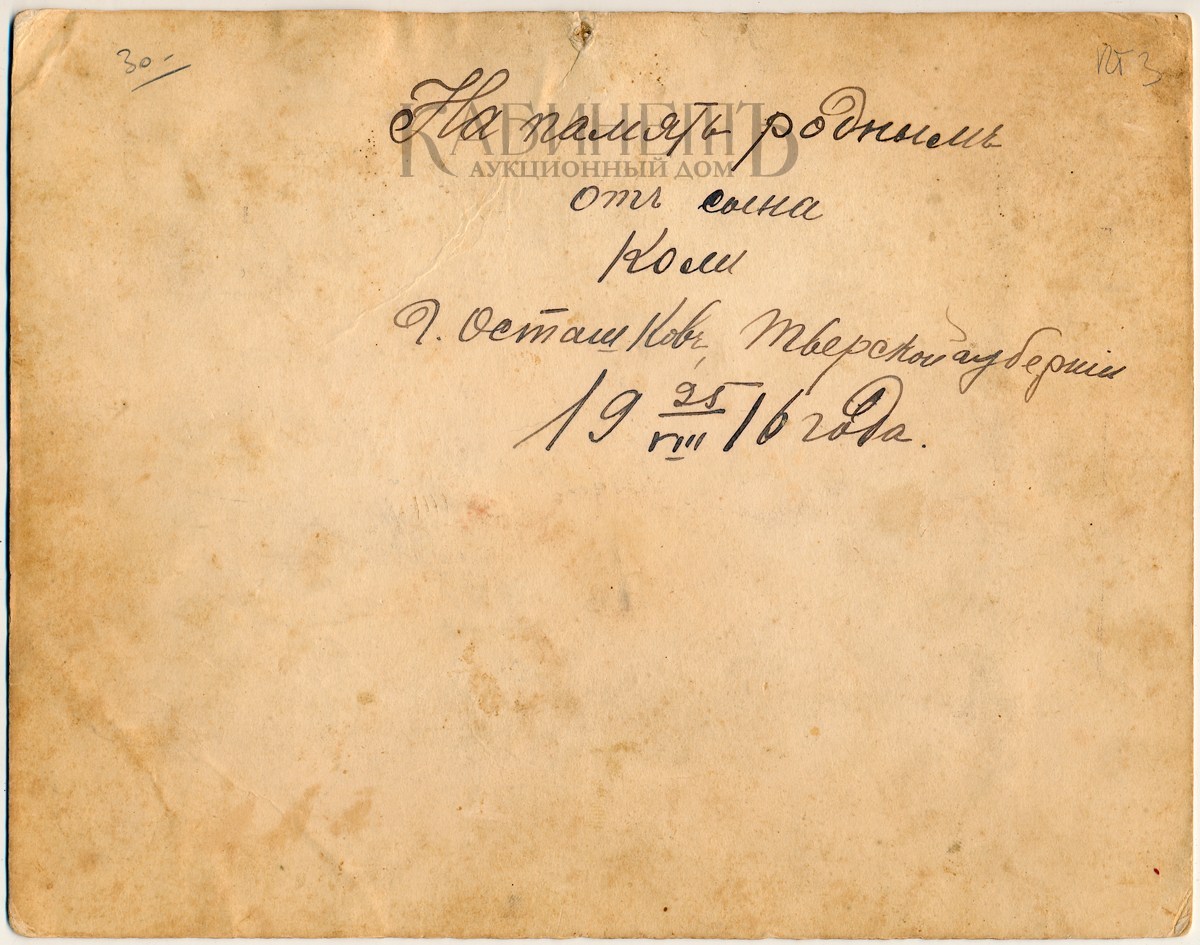 30.-
пт 3
КАБИНЕТЪ
АУКЦИОННЫЙ ДОМ
На память роднымъ
отъ сына
Коли
Г. Осташковъ, Тверской губернiи
19 25/VIII 16 года.